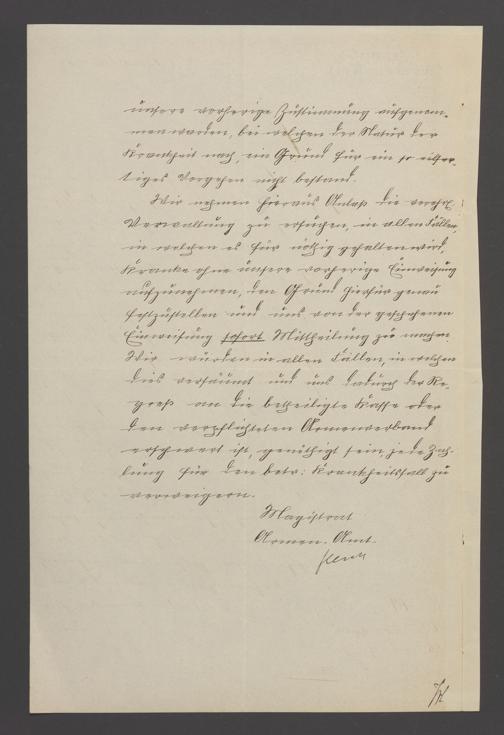 unsere vorherige Zustimmung aufgenom-
men werden, bei welchen der Natur der
Krankheit nach, ein Grund für ein so eilfer-
tiges Vorgehen nicht bestand.
Wir nehmen hieraus Anlaß die verehrl.
Verwaltung zu ersuchen, in allen Fällen,
in welchen es für nöthig gehalten wird,
Kranke ohne unsere vorherige Einweisung
aufzunehmen, den Grund hierfür genau
festzustellen und uns von der geschehenen
Einweisung sofort Mittheilung zu machen.
Wir würden in allen Fällen, in welchen
dies versäumt und uns dadurch der Re-
greß an die betheiligte Kasse oder
den verpflichteten Armenverband
erschwert ist, genöthigt sein, jede Zah-
lung für den betr: Krankheitsfall zu
verweigern.
Magistrat
Armen-Amt.